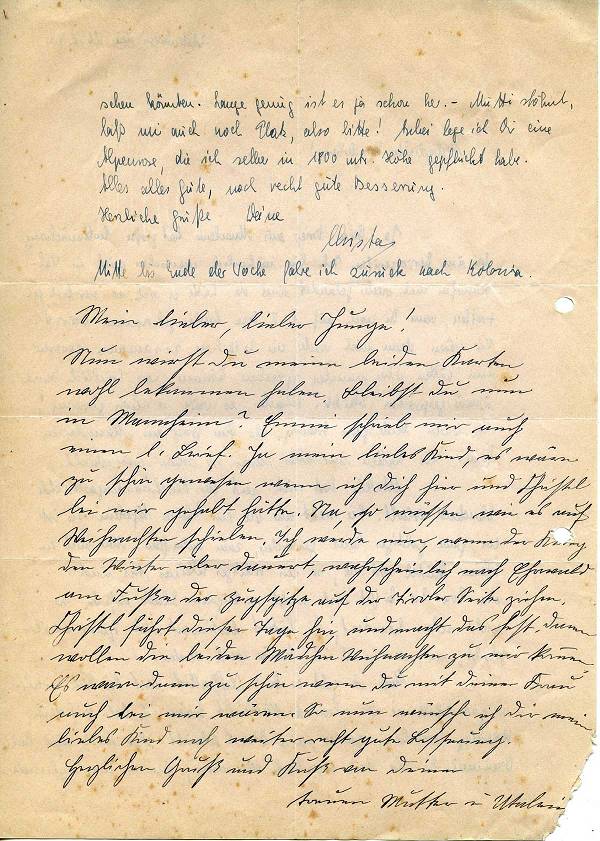 sehen könnten. Lange genug ist es ja schon her. – Mutti stöhnt,
daß mir auch noch Platz, also bitte! Dabei lege ich Dir eine
Alpenrose, die ich selber in 1800 mtr. Höhe gepflückt habe.
Alles alles Gute, noch recht gute Besserung.
Herzliche Grüße Deine
Christas
Mitte bis Ende der Woche fahre ich zurück nach Kolonia.
Mein lieber, lieber Junge!
Nun wirst Du meine beiden Karten
wohl bekommen haben. Bleibst du nun
in Mannheim? Emmi schrieb mir auch
einen l. Brief. Ja mein liebes Kind, es wäre
zu schön gewesen wenn ich Dich hier und Christl
bei mir gehabt hätte. Na, so müssen wir es auf
Weihnachten schieben. Ich werde nun, wenn der Krieg
den Winter über dauert, wahrscheinlich nach Ehrwald
am Fuße der Zugspitze auf der Tiroler Seite ziehen.
Christl fährt dieser Tage hin und macht das fest. Dann
wollen die beiden Mädchen Weihnachten zu mir kommen
Es wäre dann zu schön wenn Du mit deiner Frau
auch bei mir wären. So nun wünsche ich Dir mein
liebes Kind noch weiter recht gute Besserung.
Herzlichen Gruß und Kuß von deiner
treuen Mutter u